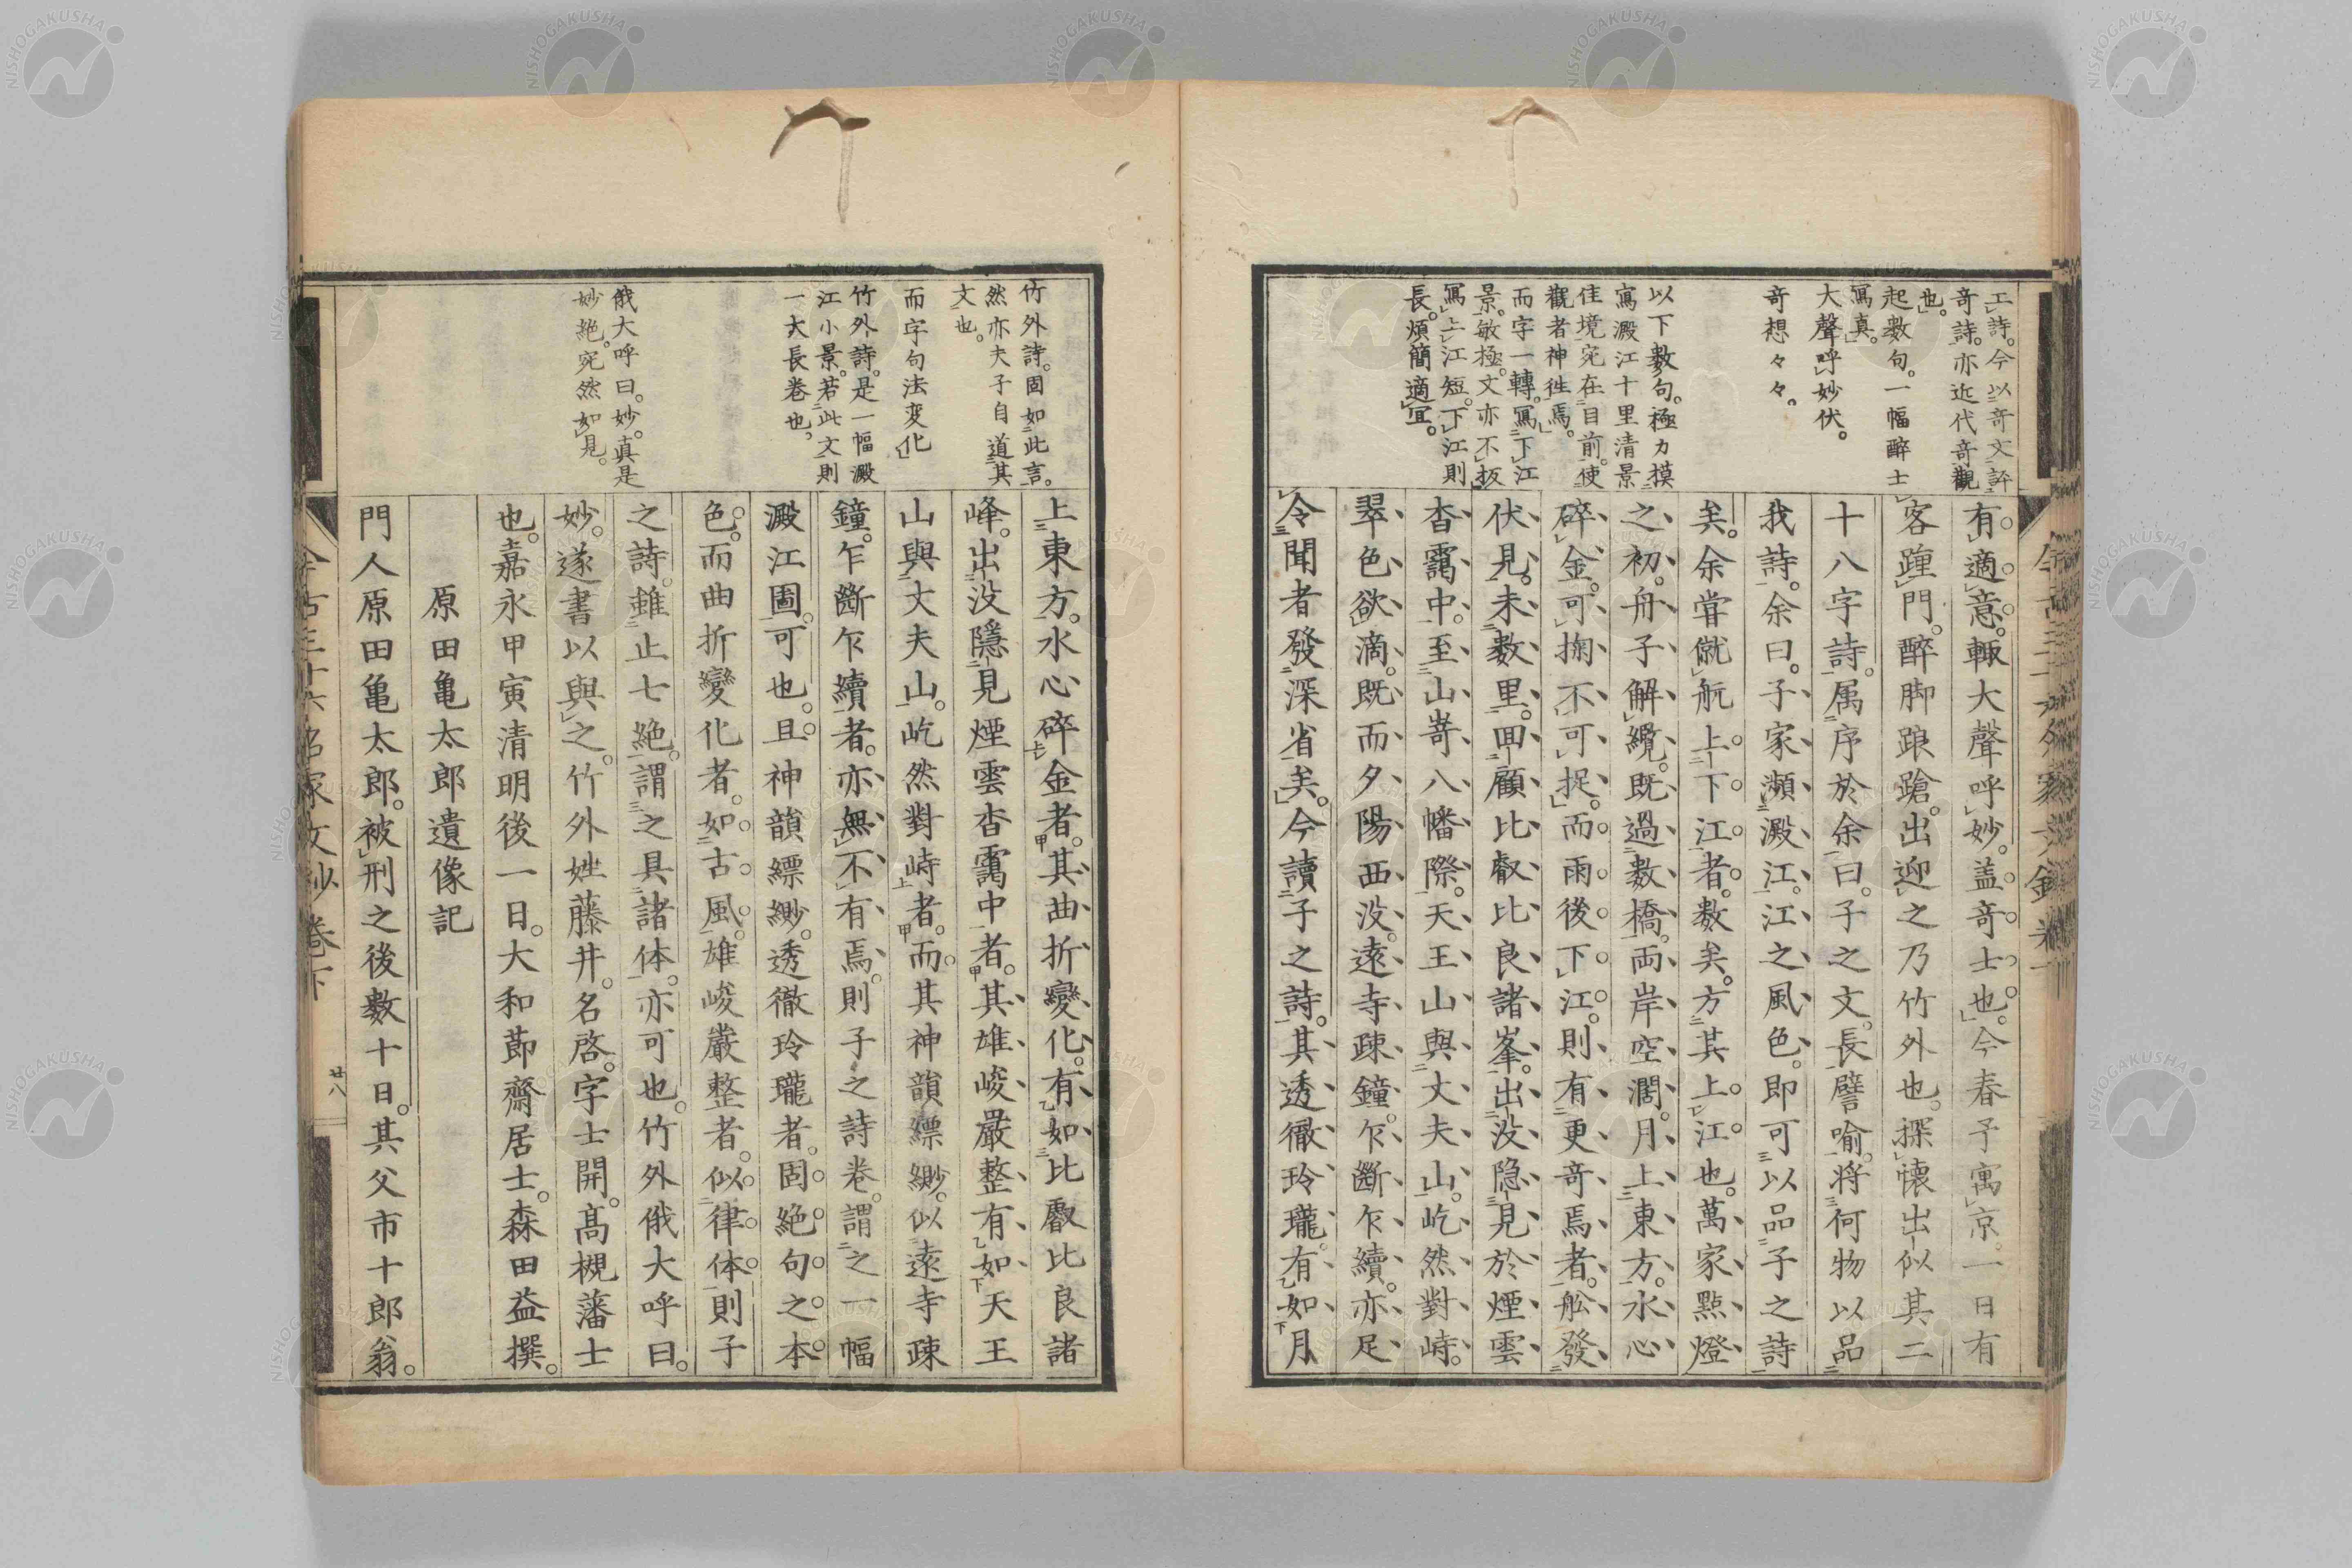 工詩。今以奇文評
奇詩。亦近代奇觀
也。
起數句。一幅醉士
寫真。
大聲呼妙伏。
奇想々々。
以下數句。極力摸
寫澱江十里清景
佳境宛在目前。使
觀者神徃焉。
而字一轉。寫下江
景。敏極。文亦不扳
寫上江短。下江則
長。煩簡適宜。
有適意。輙大聲呼妙。盖奇士也。今春予寓京。一日有
客踵門。醉脚踉蹌。出迎之乃竹外也。探懷出似其二
十八字詩。属序於余曰。子之文。長譬喻。将何物以品
我詩。余曰。子家瀕澱江。江之風色。即可以品子之詩
矣。余甞僦航上下江者。数矣。方其上江也。萬家點燈
之初。舟子解纜。既過数橋。両岸空濶。月上東方。水心
碎金。可掬不可捉。而雨後下江。則有更奇焉者。舩發
伏見。未數里。回顧比叡比良諸峯。出没隐見於煙雲
杳靄中。至山嵜八幡際。天王山與丈夫山。屹然對峙。
翠色欲滴。既而夕陽西没。遠寺疎鐘。乍斷乍續。亦足
令聞者發深省矣。今讀子之詩。其透徹玲瓏。有如月
竹外詩。固如此言。
然亦夫子自道其
文也。
而字句法変化
竹外詩。是一幅澱
江小景。若此文則
一大長卷也。
俄大呼曰。妙。真是
妙絶。宛然如見。
上東方。水心碎金者。其曲折變化。有如比叡比良諸
峰。出没隱見煙雲杳靄中者。其雄峻嚴整。有如天王
山與丈夫山。屹然對峙者。而其神韻縹緲。似遠寺疎
鐘。乍斷乍續者。亦無不有焉。則子之詩卷。謂之一幅
澱江圖。可也。且神韻縹緲。透徹玲瓏者。固絶句之本
色。而曲折變化者。如古風。雄峻嚴整者。似律体。則子
之詩。雖止七絶。謂之具諸体。亦可也。竹外俄大呼曰。
妙。遂書以與之。竹外姓藤井。名啓。字士開。髙槻藩士
也。嘉永甲寅清明後一日。大和莭齋居士。森田益撰。
原田亀太郎遺像記
門人原田亀太郎。被刑之後數十日。其父市十郎翁。
今古三十六名家文抄卷下
廿八